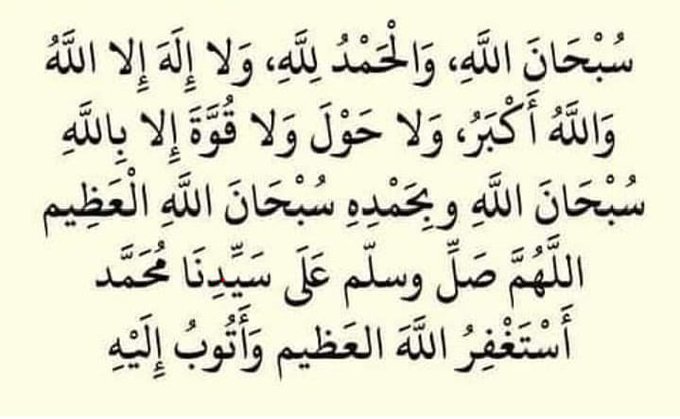 سُبْحَانَ اللَّهِ، وَالْحَمْدُ لِلَّهِ، وَلا إِلَهَ إِلا اللَّهُ
وَاللَّهُ أَكْبَرُ، وَلا حَوْلَ وَلا قُوَّةَ إِلا بِاللَّهِ
سُبْحَانَ اللَّهِ وبِحَمْدِهِ سُبْحَانَ اللَّهِ الْعَظِيم
اللَّهُمَّ صَلِّ وسلّم عَلَى سَيِّدِنَا مُحَمَّد
أَسْتَغْفِرُ اللَّهَ العَظيم وَأَتُوبُ إِلَيْهِ